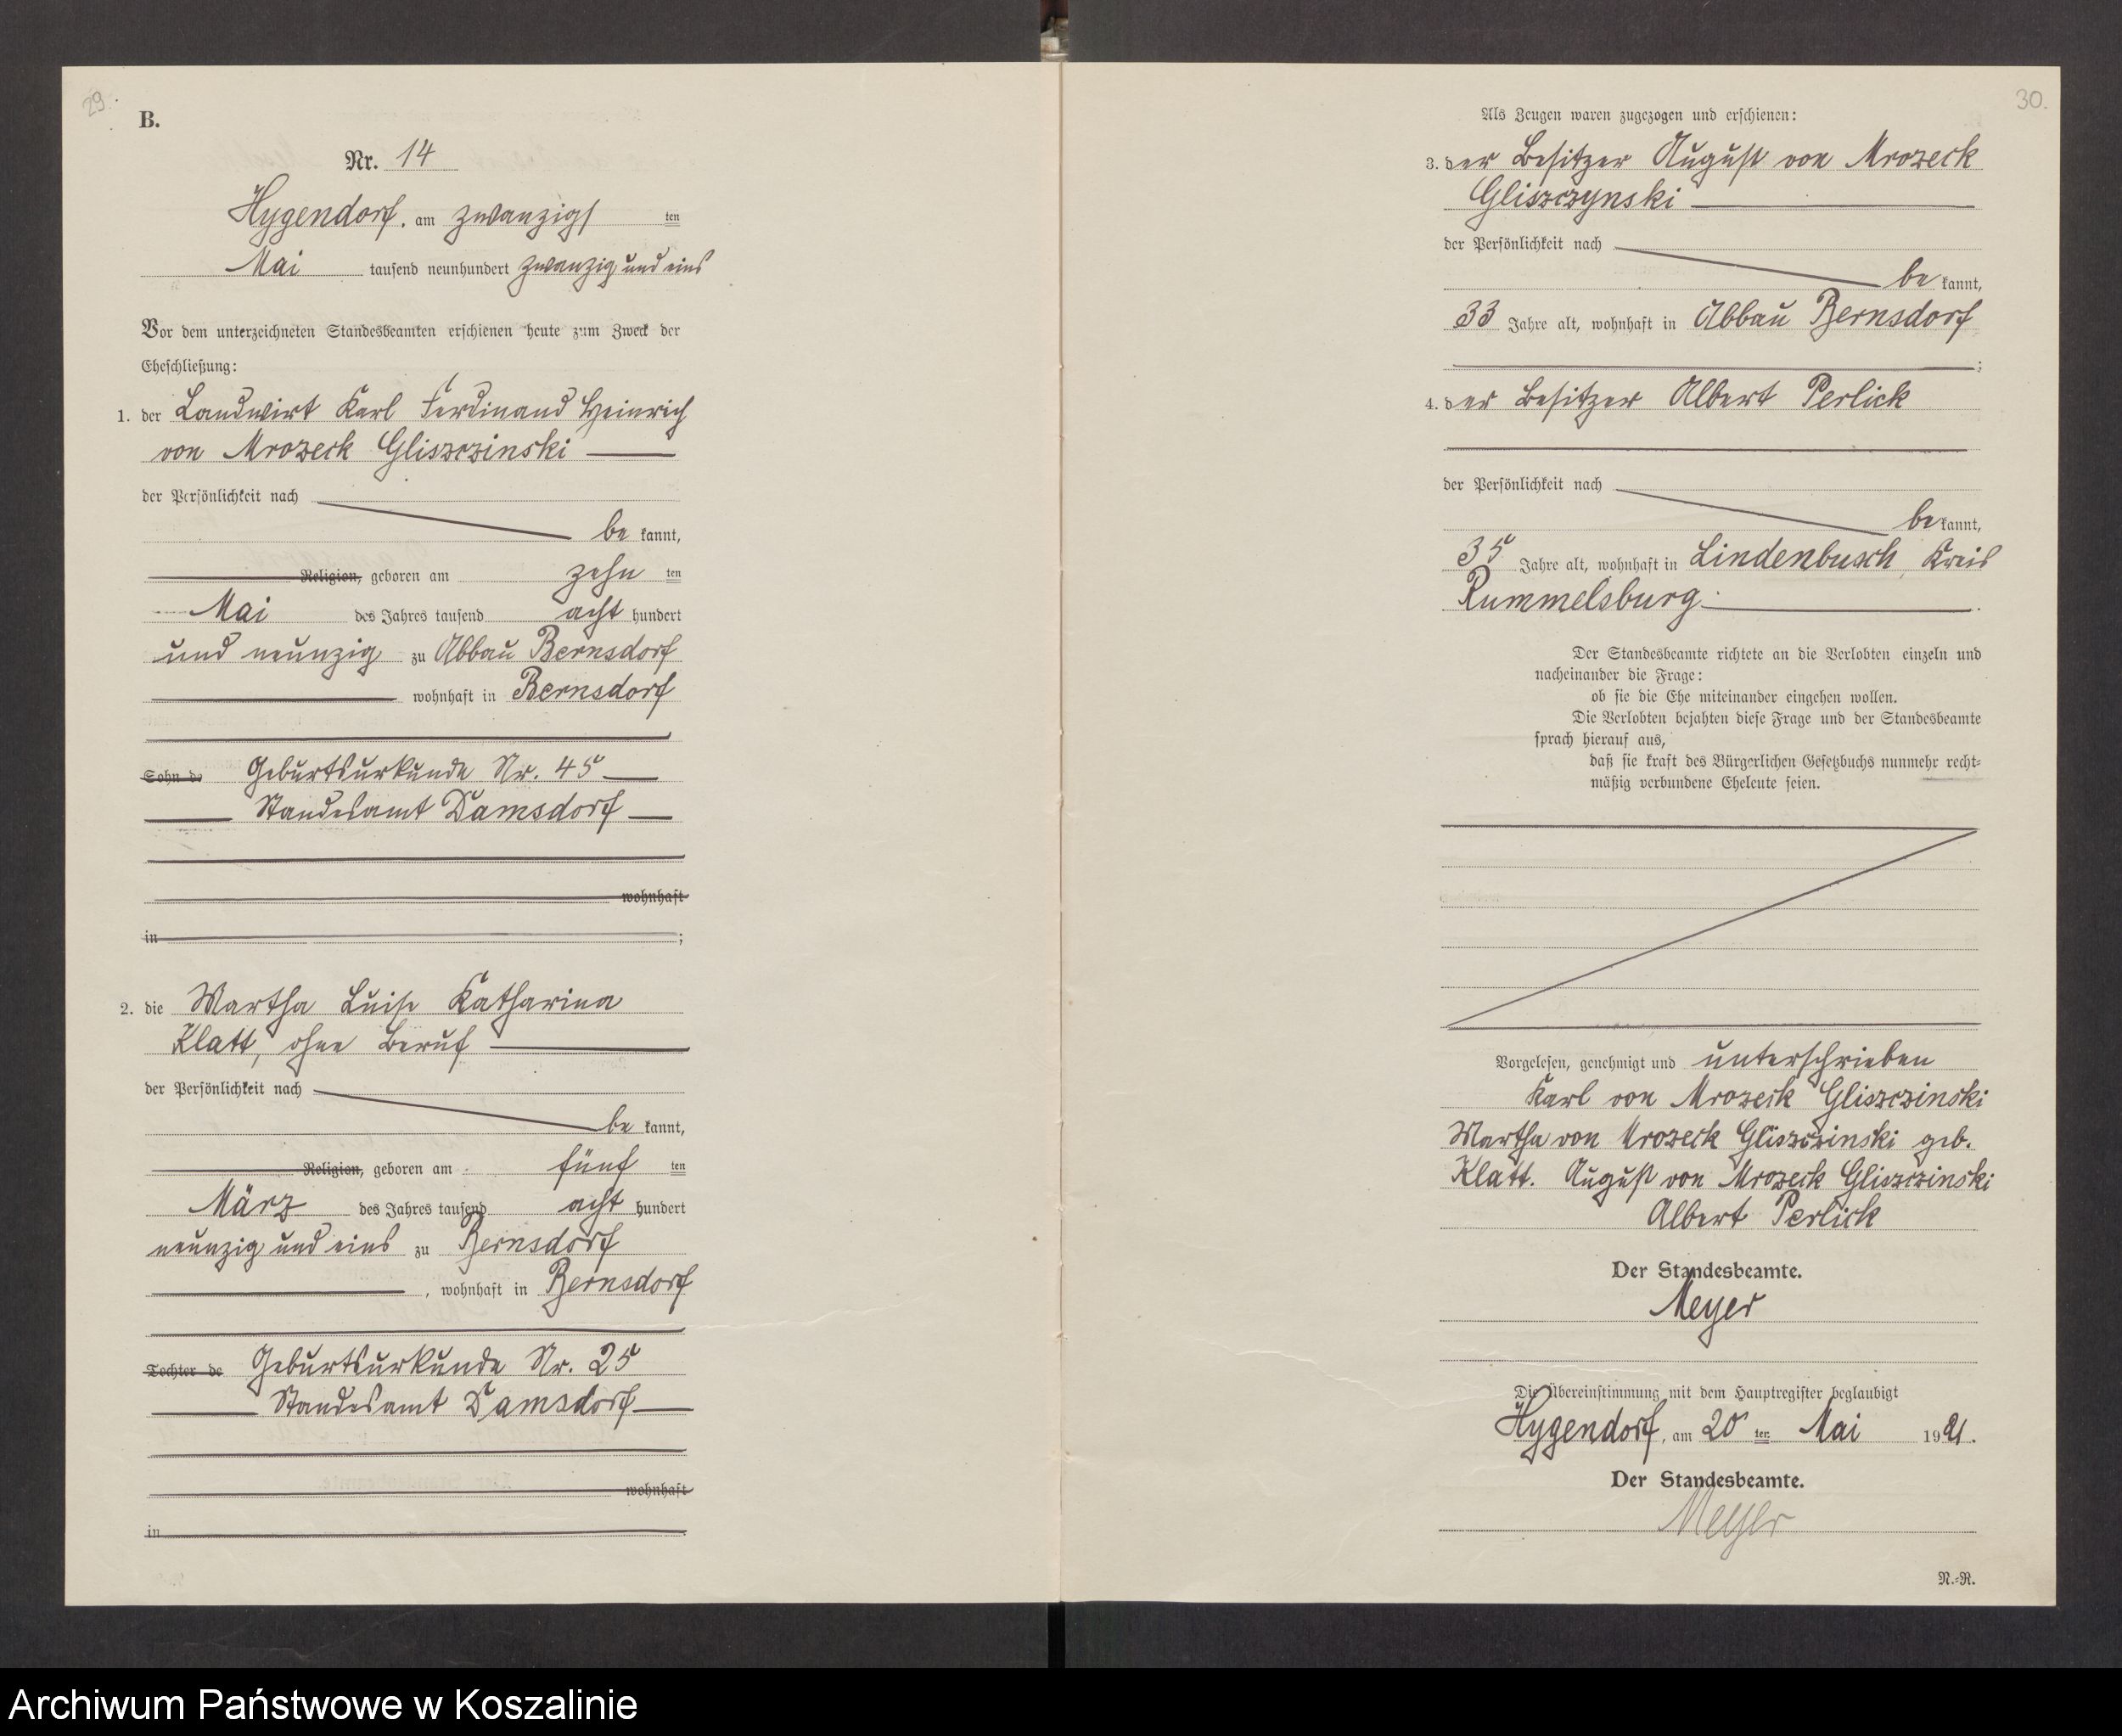 29.
B.
Nr. 14
Hygendorf, am zwanzigsten
Mai tausend neunhundert zwanzig und eins
Vor dem unterzeichneten Standesbeamten erschienen heute zum Zweck der
Eheschließung:
1. der Landwirt Karl Ferdinand Heinrich
von Mrozeck Gliszczinski
der Persönlichkeit nach
be kannt,
Religion, geboren am zehn ten
Mai des Jahres tausend acht hundert
und neunzig zu Abbau Bernsdorf
wohnhaft in Bernsdorf
Sohn de Geburtsurkunde Nr. 45
Standesamt Damsdorf
wohnhaft
in ;
2. die Martha Luise Katharina
Klatt, ohne Beruf
der Persönlichkeit nach
be kannt,
Religion, geboren am fünf ten
März des Jahres tausend acht hundert
neunzig und eins zu Bernsdorf
, wohnhaft in Bernsdorf
Tochter de Geburtsurkunde Nr. 25
Standesamt Damsdorf
wohnhaft
in .
30.
Als Zeugen waren zugezogen und erschienen:
3. der Besitzer August von Mrozeck
Gliszczynski
der Persönlichkeit nach
be kannt,
33 Jahre alt, wohnhaft in Abbau Bernsdorf
;
4. der Besitzer Albert Perlick
der Persönlichkeit nach
be kannt,
35 Jahre alt, wohnhaft in Lindenbusch, Kreis
Rummelsburg.
Der Standesbeamte richtete an die Verlobten einzeln und
nacheinander die Frage:
ob sie die Ehe miteinander eingehen wollen.
Die Verlobten bejahten diese Frage und der Standesbeamte
sprach hierauf aus,
daß sie kraft des Bürgerlichen Gesetzbuchs nunmehr recht-
mäßig verbundene Eheleute seien.
Vorgelesen, genehmigt und unterschrieben
Karl von Mrozeck Gliszczinski
Martha von Mrozeck Gliszczinski geb.
Klatt. August von Mrozeck Gliszczinski
Albert Perlick
Der Standesbeamte.
Meyer
Die Übereinstimmung mit dem Hauptregister beglaubigt
Hygendorf, am 20 ten Mai 1921.
Der Standesbeamte.
Meyer
N.-R.
Archiwum Państwowe w Koszalinie